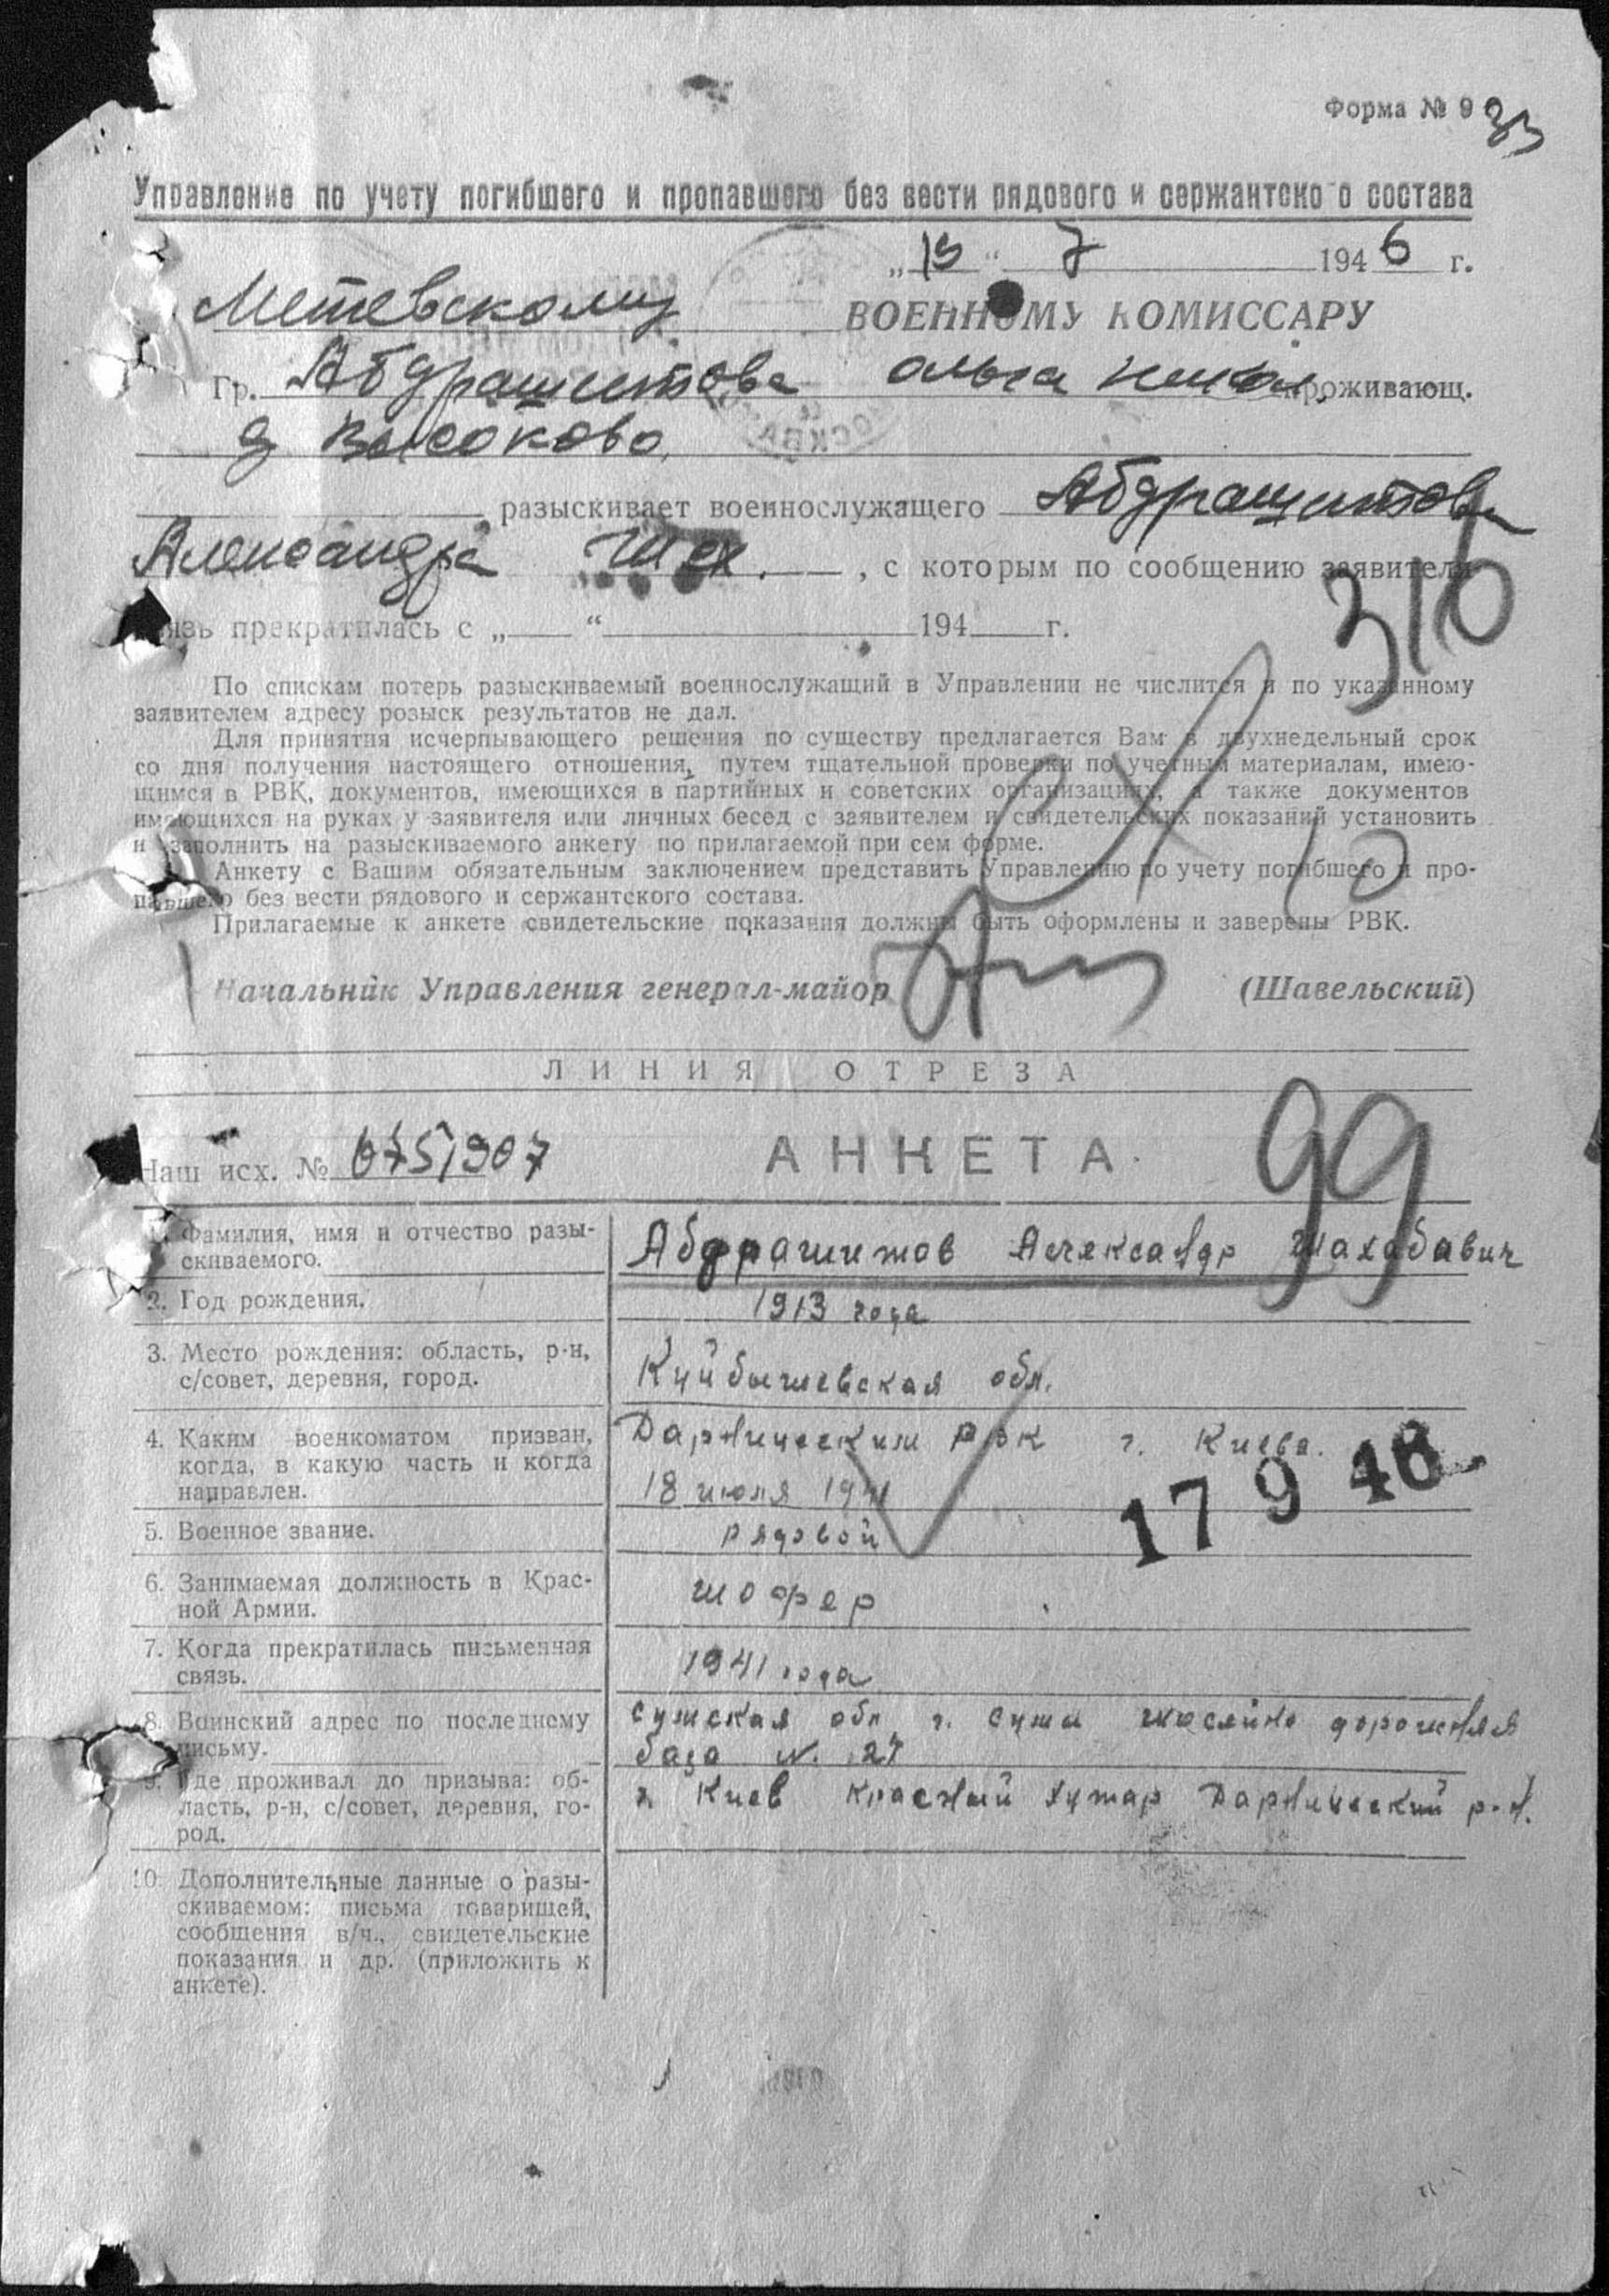 Форма № 9
33
Управление по учету погибшего и пропавшего без вести рядового и сержантского состава
„15“ 7 1946 г.
ВОЕННОМУ КОМИССАРУ
Гр. Абдрашитова Ольга проживающ.
д Высоково
разыскивает военнослужащего Абдрашитова
Александра Шах. , с которым по сообщению заявителя
связь прекратилась с „ “ 194 г.
316
По спискам потерь разыскиваемый военнослужащий в Управлении не числится и по указанному
заявителем адресу розыск результатов не дал.
Для принятия исчерпывающего решения по существу предлагается Вам в двухнедельный срок
со дня получения настоящего отношения, путем тщательной проверки по учетным материалам, имею-
щимся в РВК, документов, имеющихся в партийных и советских организациях, а также документов
имеющихся на руках у заявителя или личных бесед с заявителем и свидетельских показаний установить
и заполнить на разыскиваемого анкету по прилагаемой при сем форме.
Анкету с Вашим обязательным заключением представить Управлению по учету погибшего и про-
павшего без вести рядового и сержантского состава.
Прилагаемые к анкете свидетельские показания должны быть оформлены и заверены РВК.
Начальник Управления генерал-майор (Шавельский)
ЛИНИЯ ОТРЕЗА
Наш исх. № 675/907 АНКЕТА
99
1. Фамилия, имя и отчество разы-
скиваемого.
Абдрашитов Александр Шахабавич
2. Год рождения.
1913 года
3. Место рождения: область, р-н,
с/совет, деревня, город.
Куйбышевская обл.
4. Каким военкоматом призван,
когда, в какую часть и когда
направлен.
Дарницеским РВК г. Киева.
18 июля 1941
17 9 46
5. Военное звание.
рядовой
6. Занимаемая должность в Крас-
ной Армии.
шофер
7. Когда прекратилась письменная
связь.
1941 года
8. Воинский адрес по последнему
письму.
Сумская обл г. Сумы шосейно дорожная
база N. 27
9. Где проживал до призыва: об-
ласть, р-н, с/совет, деревня, го-
род.
г. Киев Красный хутар Дарницеский р-н.
10. Дополнительные данные о разы-
скиваемом: письма товарищей,
сообщения в/ч., свидетельские
показания и др. (приложить к
анкете).